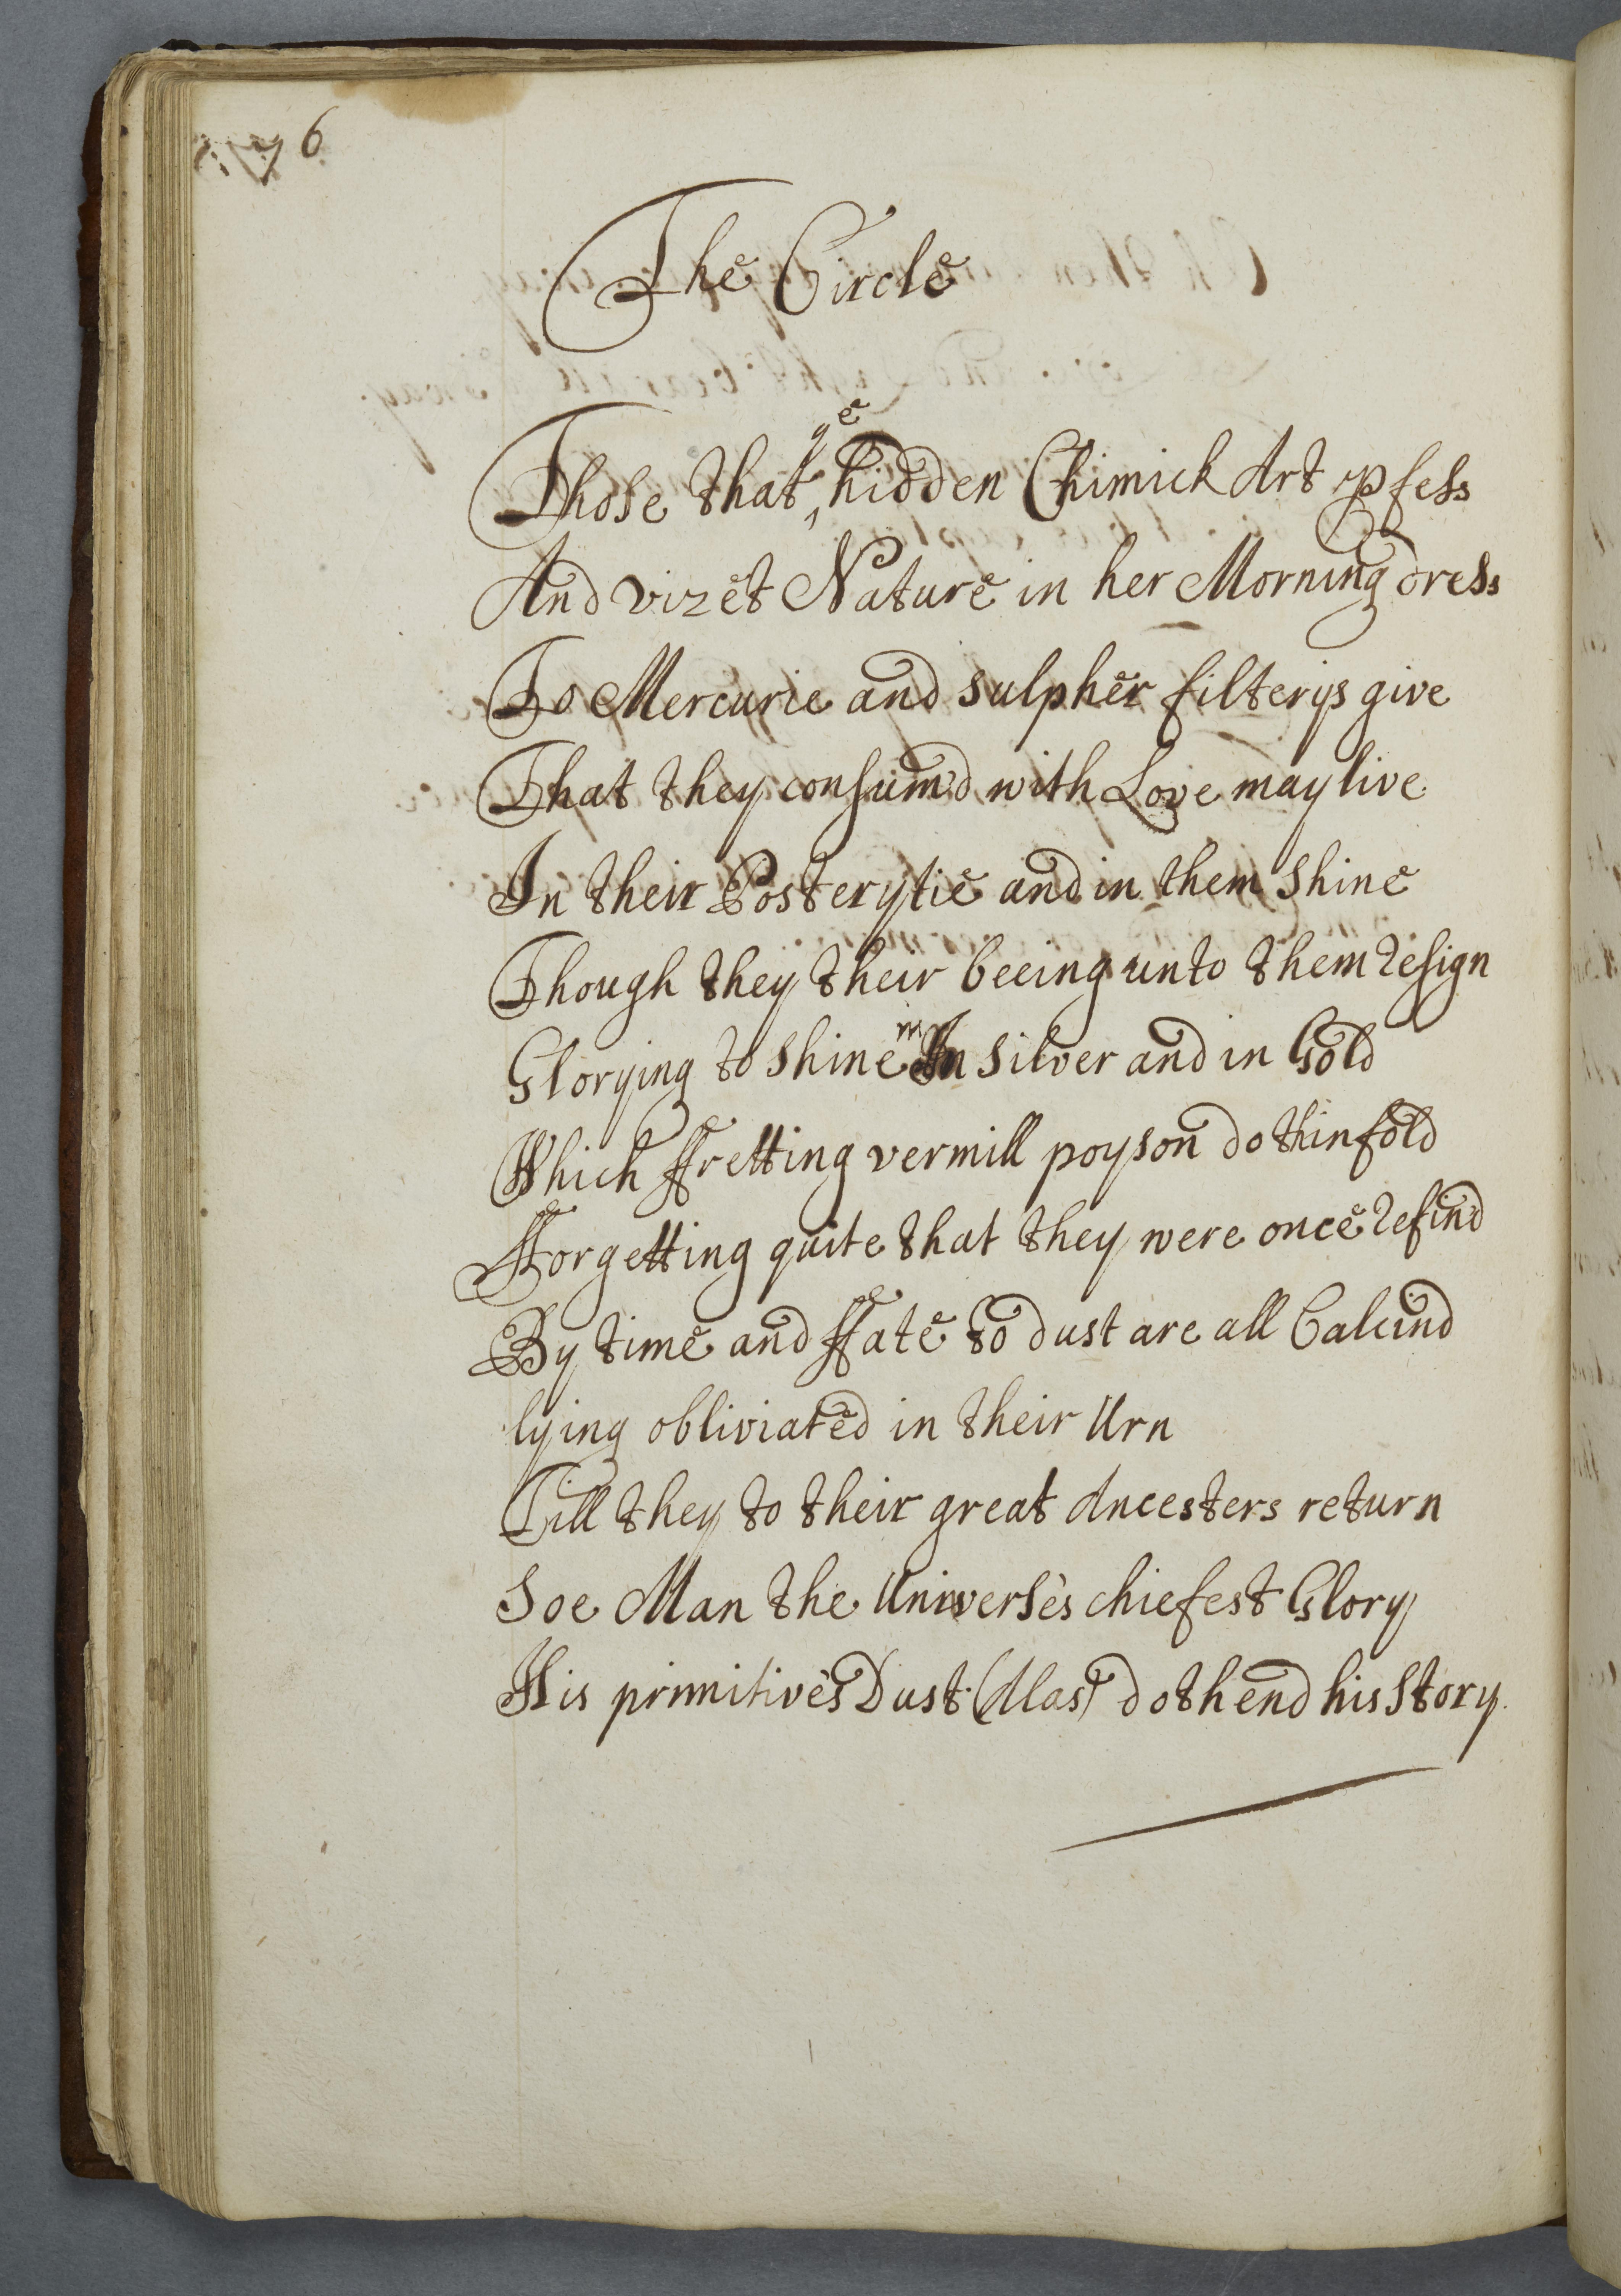 6
The Circle
Those that ye hidden Chimick Art pfess
And vizet Nature in her Morning dress
To Mercurie and sulpher filterys give
That they consum'd with Love may live
In their Posterytie and in them shine
Though they their beeing unto them resign
Glorying to shine in silver and in Gold
Which ffretting vermill poyson doth infold
fforgetting quite that they were once refin'd
By time and ffate to dust are all Calcind
lying obliviated in their Urn
Till they to their great Ancesters return
Soe Man the Universes chiefest Glory
His primitives Dust (Alas) doth end his Story.